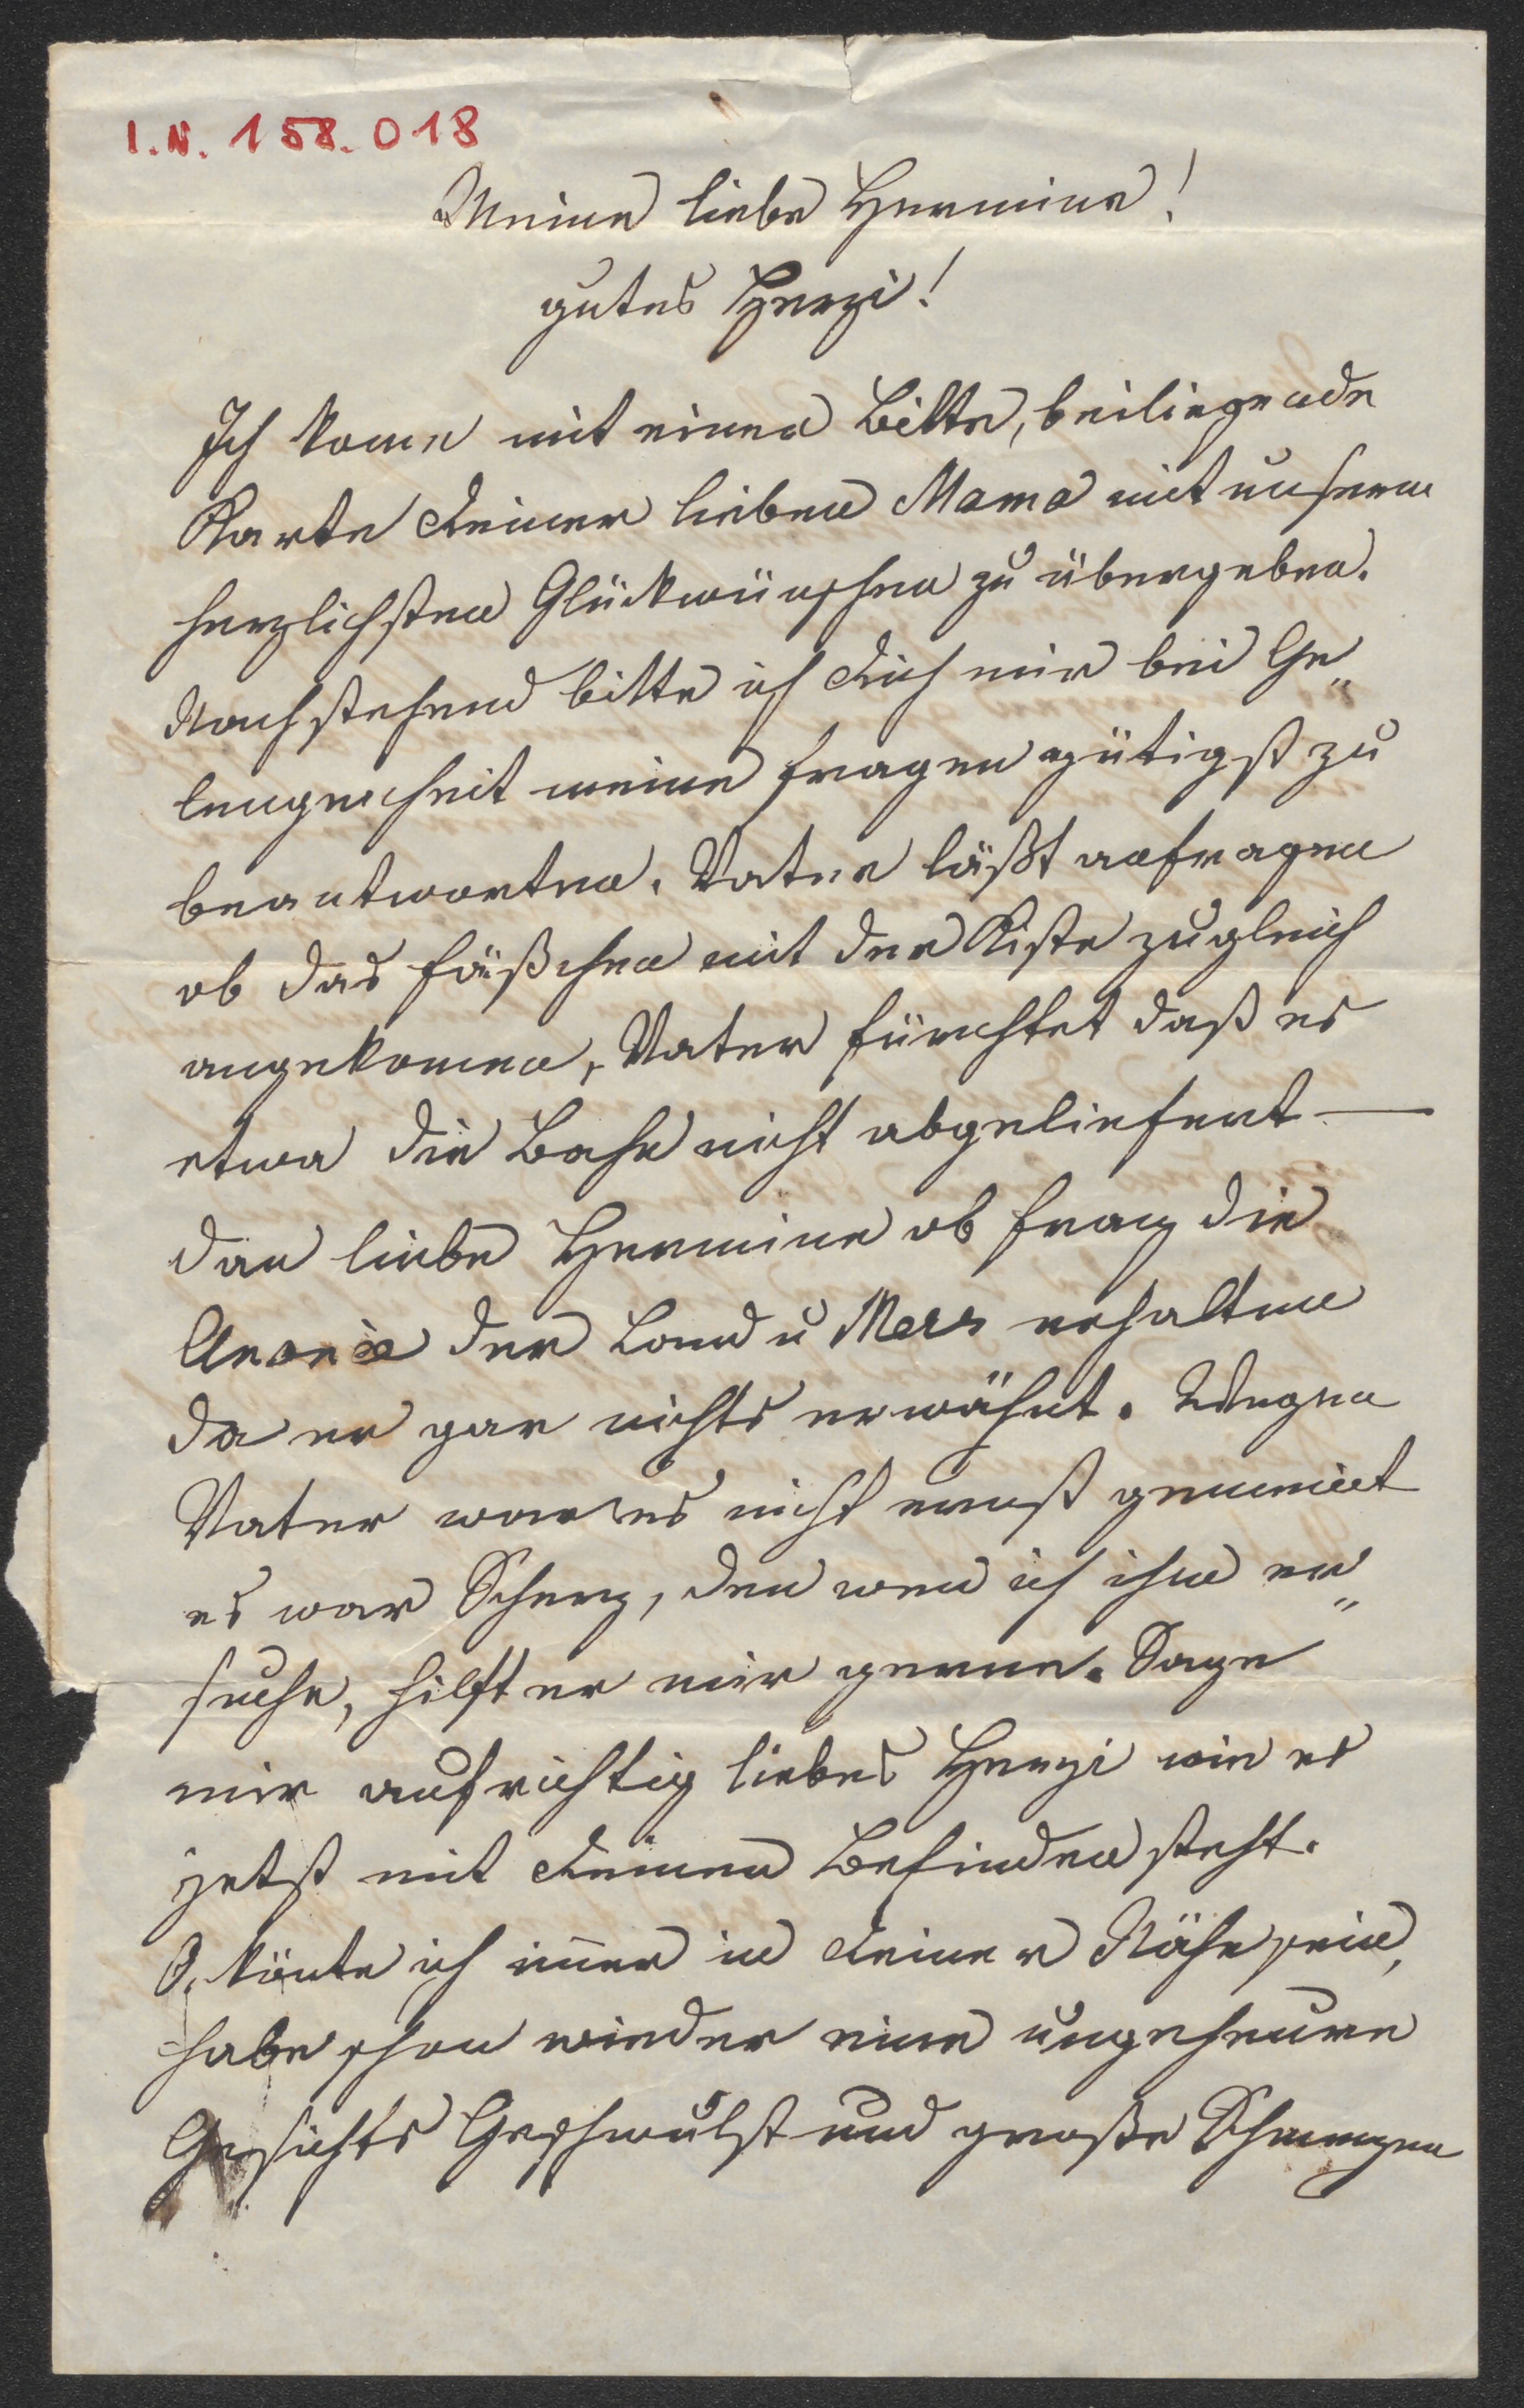 I.N. 158.018
Meine liebe Hermine!
gutes Herzi!
Ich kome mit einer Bitte, beiliegende
Karte Deiner lieben Mama mit unseren
herzlichsten Glückwünschen zu übergeben.
Nachstehend bitte ich Dich mir bei Ge„
legenheit meine Fragen gütigst zu
beantworten. Vater läßt anfragen
ob das Fäßchen mit der Kiste zugleich
angekomen, Vater fürchtet daß es
etwa die Bahn nicht abgeliefert —
dan liebe Hermine ob Franz die
der Land u Meer erhalten
da er gar nichts erwähnt. Wegen
Vater war es nicht ernst gemeint
es war Scherz, den wen ich ihn er„
suche, hilft er mir gerne. Sage
mir aufrichtig liebes Herzi wie es
jetzt mit Deinen Befinden steht.
O, könte ich imer in Deiner Nähe sein,
habe schon wieder eine ungeheure
Gesichts Geschwulst und große Schmerzen